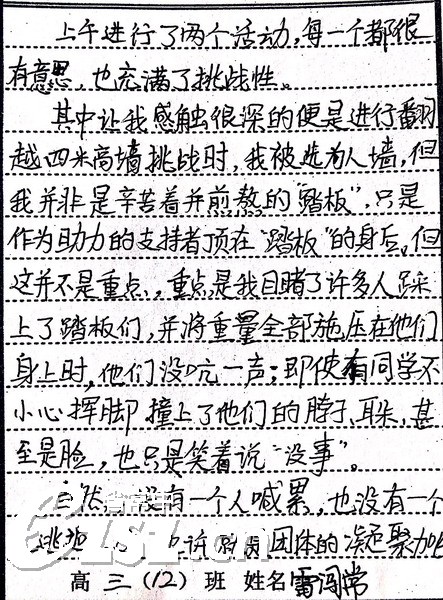 上午进行了两个活动，每一个都很
有意思，也充满了挑战性。
其中让我感触很深的便是进行翻
越四米高墙挑战时，我被选为人墙，但
我并非是辛苦着并煎熬的“踏板”，只是
作为助力的支持者顶在“踏板”的身后。但
这并不是重点，重点是我目睹了许多人踩
上了踏板们，并将重量全部施压在他们
身上时，他们没吭一声；即使有同学不
小心挥脚撞上了他们的脖子、耳朵，甚
至是脸，也只是笑着说“没事”。
然 没有一个人喊累，也没有一个
逃 团体的凝聚力
高三（12）班 姓名雷闯常